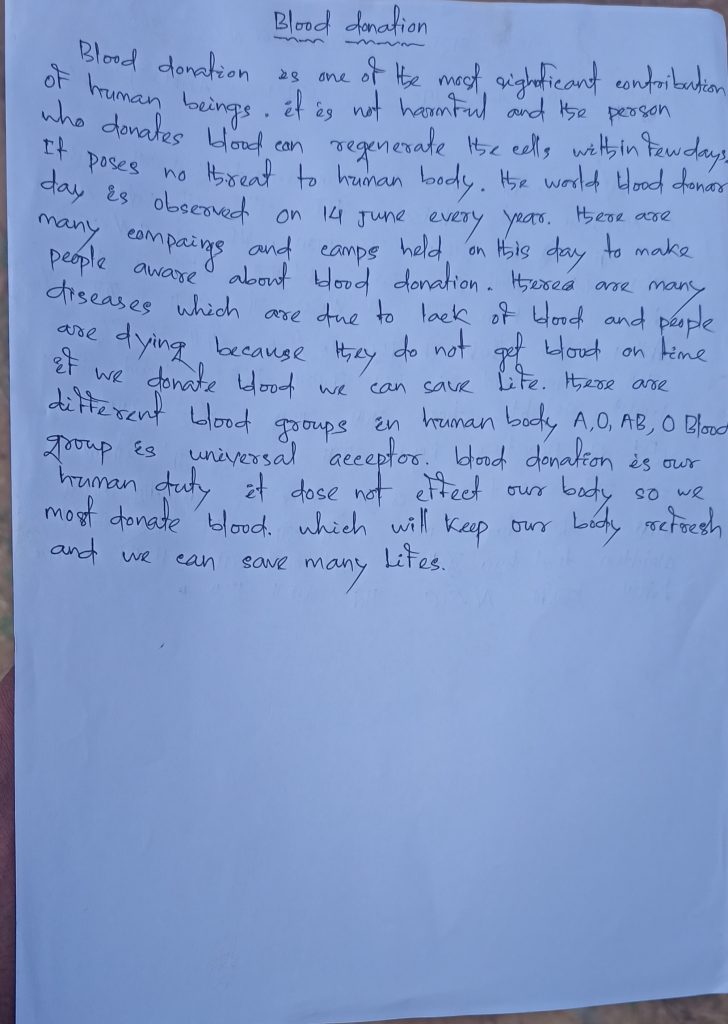 Blood donation
Blood donation is one of the most significant contribution
of human beings. it is not harmful and the person
who donates blood can regenerate the cells within few days.
It poses no threat to human body. the world blood donor
day is observed on 14 June every year. there are
many compaings and camps held on this day to make
people aware about blood donation. therea are many
diseases which are due to lack of blood and people
are dying because they do not get blood on time
if we donate blood we can save life. there are
different blood groups in human body A, O, AB, O Blood
group is universal acceptor. blood donation is our
human duty it dose not effect our body so we
most donate blood. which will keep our body refresh
and we can save many lifes.